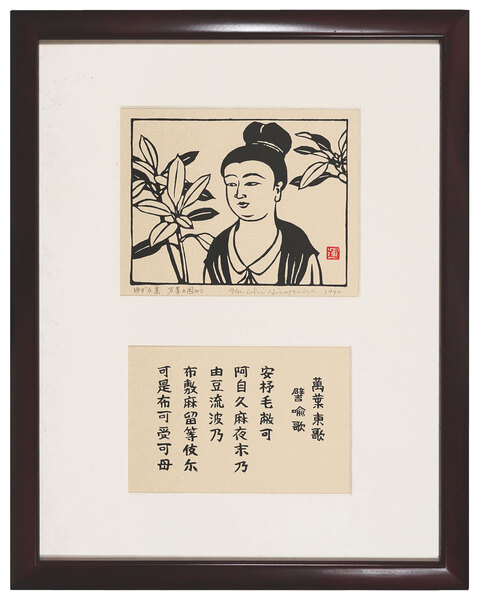 ゆずる葉
萬葉東歌
譬喩歌
安杼毛敝可
阿自久麻夜末乃
由豆流波乃
布敷麻留等伎尓
可是布可受可母